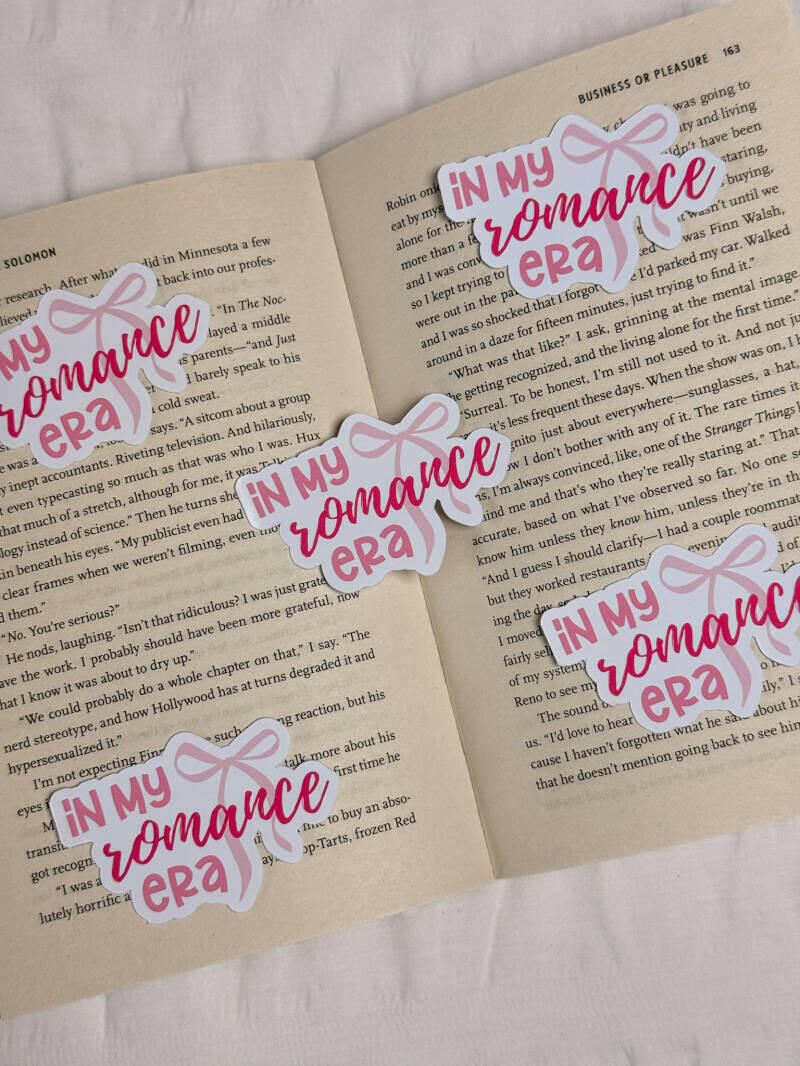 SOLOMON
r research. After what did in Minnesota a few
back into our profes-
“In The Noc-
layed a middle
parents—“and Just
barely speak to his
cold sweat.
says. “A sitcom about a group
y inept accountants. Riveting television. And hilariously,
t even typecasting so much as that was who I was. Hux
that much of a stretch, although for me, it was
ology instead of science.” Then he turns
in beneath his eyes. “My publicist even had
clear frames when we weren’t filming, even
d them.”
“No. You’re serious?”
He nods, laughing. “Isn’t that ridiculous? I was just
ave the work. I probably should have been more grateful, now
hat I know it was about to dry up.”
“We could probably do a whole chapter on that,” I say. “The
nerd stereotype, and how Hollywood has at turns degraded it and
hypersexualized it.”
I’m not expecting such reaction, but his
eyes talk more about his
first time he
transi to buy an abso-
got recogn op-Tarts, frozen Red
“I was a
lutely horrific
BUSINESS OR PLEASURE 163
was going to
ty and living
ldn’t have been
staring,
buying,
Robin
eat by mys
alone for the wasn’t until we
more than a was Finn Walsh,
and I was conv I’d parked my car. Walked
so I kept trying to
were out in the
and I was so shocked that I forgot
around in a daze for fifteen minutes, just trying to find it.”
“What was that like?” I ask, grinning at the mental image.
the getting recognized, and the living alone for the first time.”
“Surreal. To be honest, I’m still not used to it. And not ju
it’s less frequent these days. When the show was on, I h
gnito just about everywhere—sunglasses, a hat,
w I don’t bother with any of it. The rare times it
ns, I’m always convinced, like, one of the Stranger Things
ind me and that’s who they’re really staring at.” That
accurate, based on what I’ve observed so far. No one se
know him unless they know him, unless they’re in th
“And I guess I should clarify—I had a couple roommat
but they worked restaurants evenin audit
ing the day of
I moved
fairly sel
of my system
Reno to see my
The sound ily,” I s
us. “I’d love to hear about hi
cause I haven’t forgotten what he said
that he doesn’t mention going back to see him
IN MY
romance
ERA
MY
romance
ERA
IN MY
romance
ERA
IN MY
romance
ERA
IN MY
romance
ERA